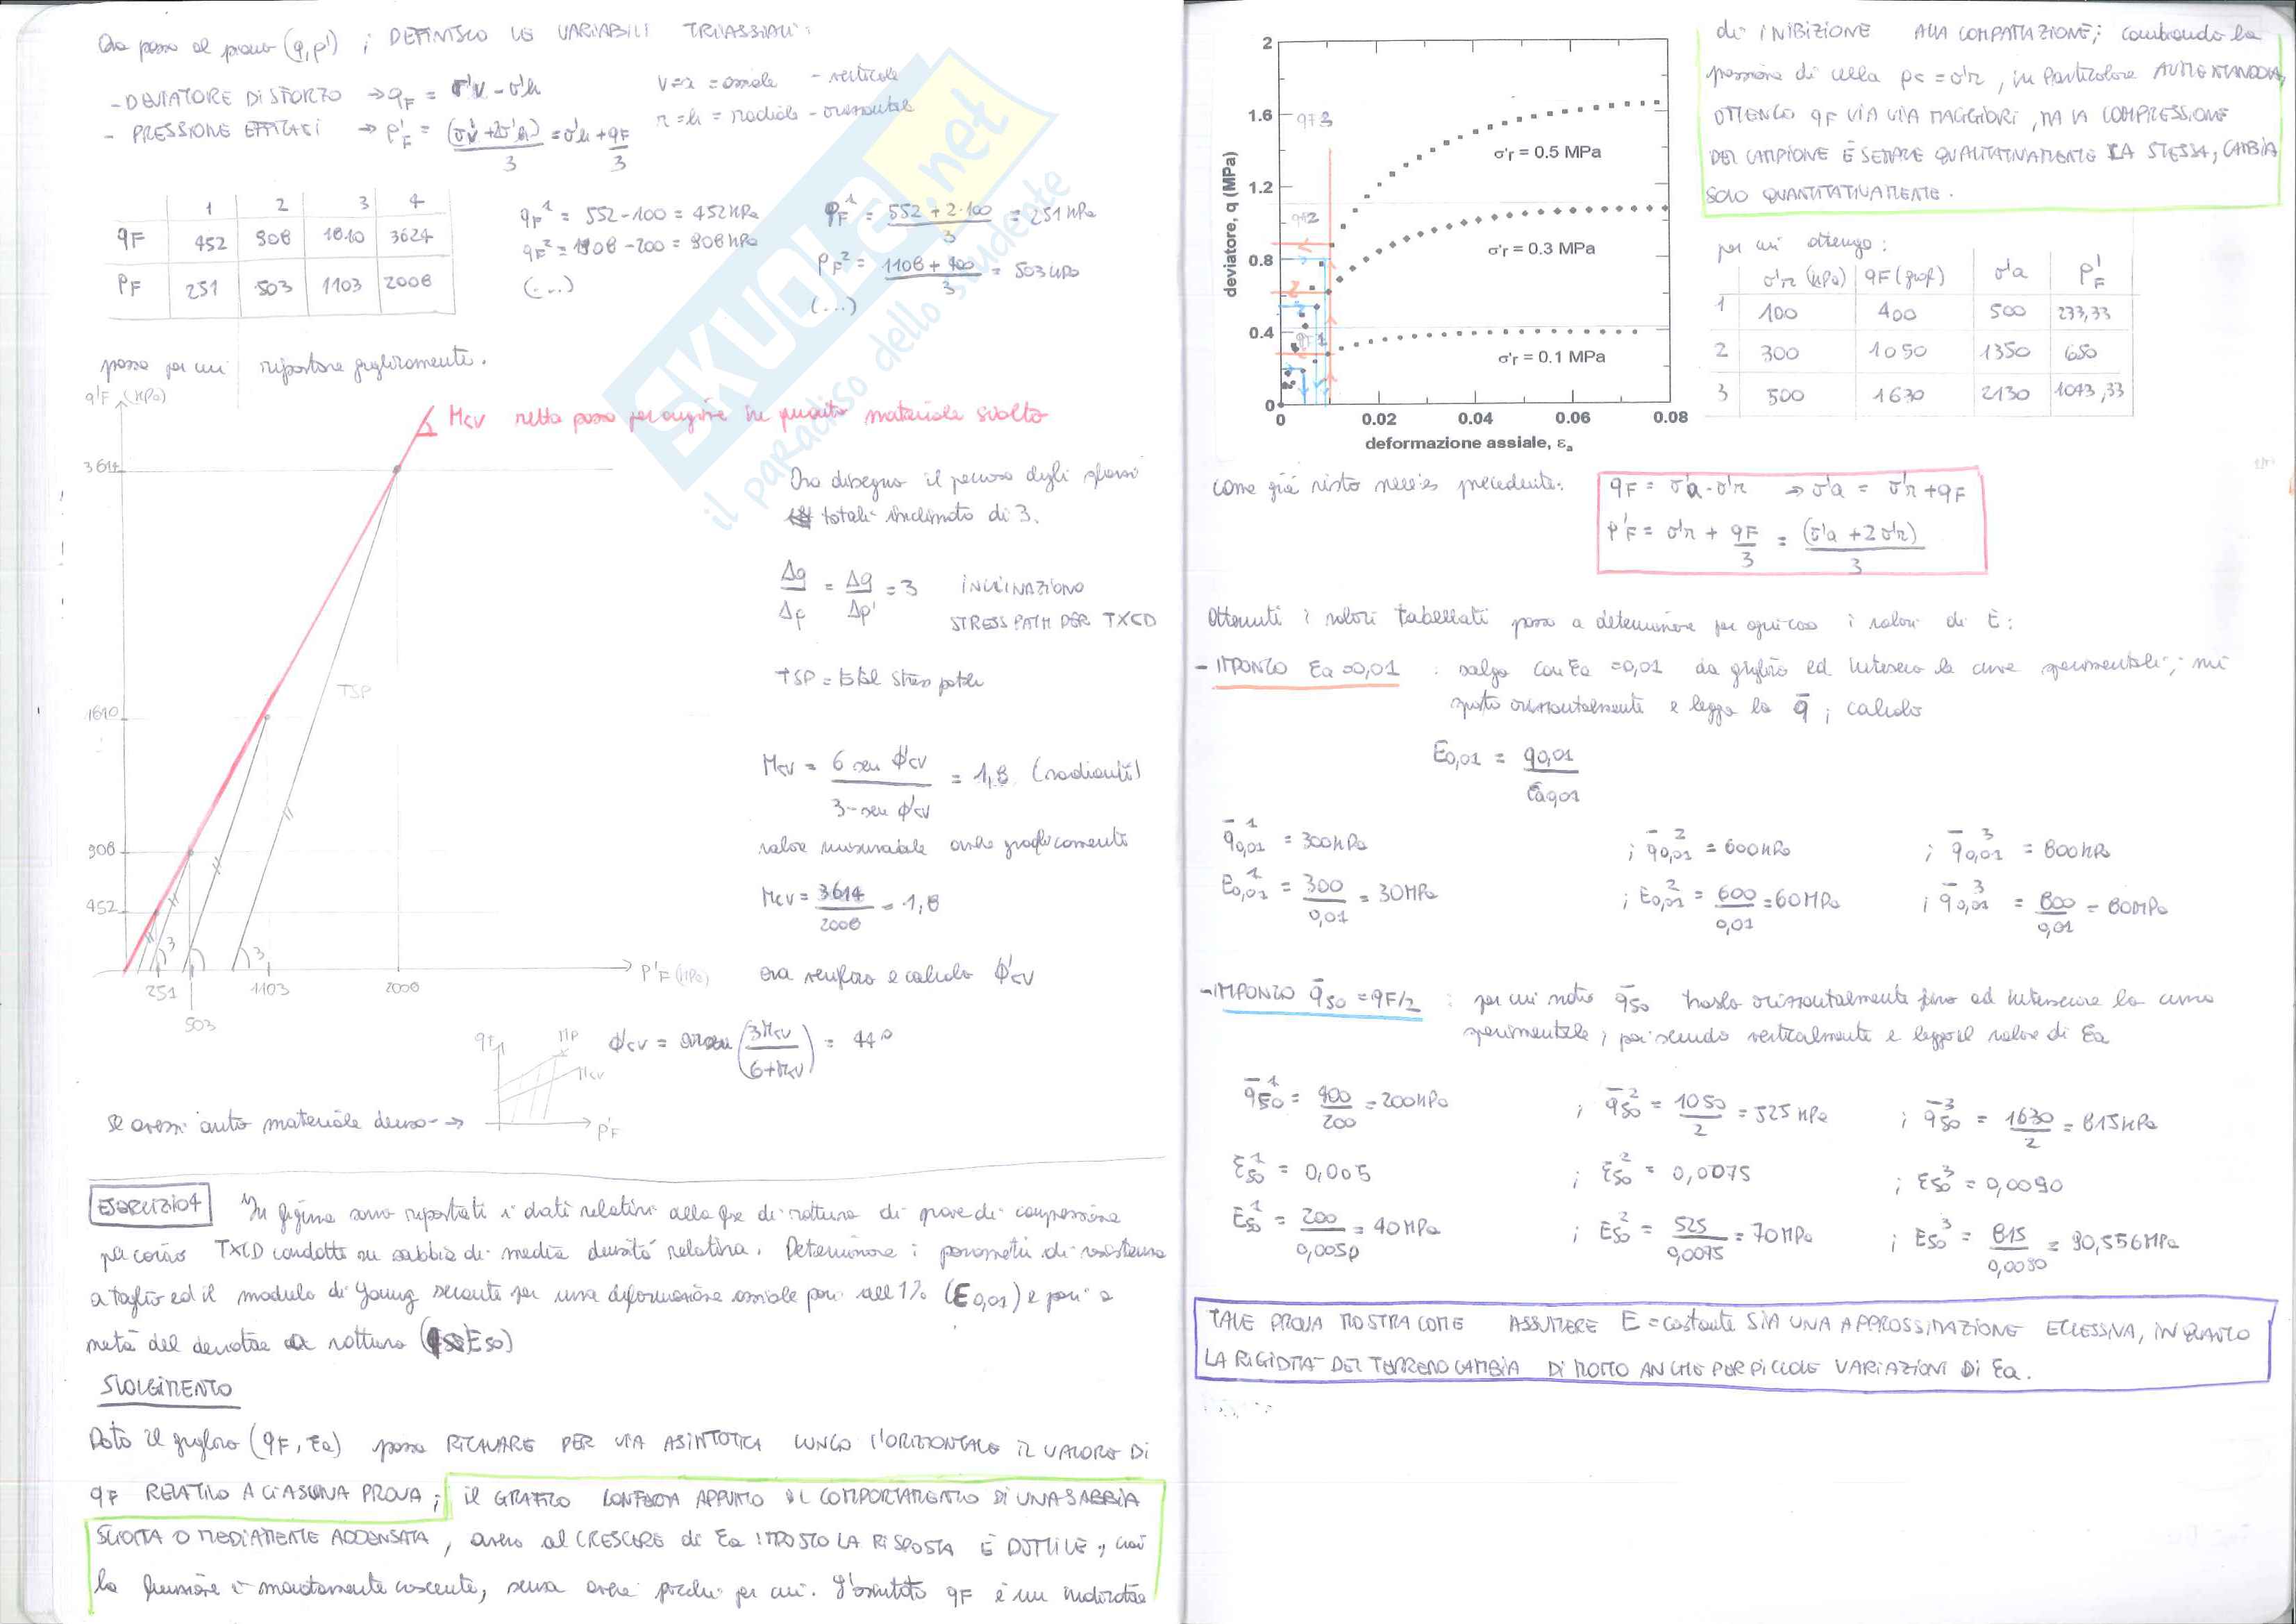 Ora passo al piano (q,p') ; DEFINISCO LE VARIABILI TRIASSIALI:
- DEVIATORE DI SFORZO → qF = σ'v - σ'h
v=a = assiale - verticale
- PRESSIONE EFFICACI → p'F = (σ'v + 2σ'h)/3 = σ'h + qF/3
r=h = radiale - orizzontale
1 2 3 4
qF 452 908 1810 3624
PF 251 503 1103 2008
qF¹ = 552-100 = 452 kPa
qF² = 1108-200 = 908 kPa
(...)
PF¹ = (552 + 2·100)/3 = 251 kPa
PF² = (1108 + 400)/3 = 503 kPa
(...)
SKUOLA.net
il paradiso dello studente
posso per cui riportare graficamente.
q'F (kPa)
Mcv retta passa per origine in quanto materiale sciolto
3614
1610
908
452
TSP
3 3
251 503 1103 2008
P'F (kPa)
Ora disegno il percorso degli sforzi
totali inclinato di 3.
Δq/Δp = Δq/Δp' = 3 INCLINAZIONE
STRESS PATH PER TXCD
TSP = total stress path
Mcv = 6 sen ϕ'cv / (3 - sen ϕ'cv) = 1,8 (radianti)
valore misurabile anche graficamente
Mcv = 3614/2008 = 1,8
ora verifico e calcolo ϕ'cv
ϕcv = arcsen (3Mcv/(6+Mcv)) = 44°
se avessi avuto materiale denso →
qF MP Mcv P'F
ESERCIZIO 4 In figura sono riportati i dati relativi alla fase di rottura di prove di compressione
per carico TXCD condotte su sabbia di media densità relativa. Determinare i parametri di resistenza
a taglio ed il modulo di Young secante per una deformazione assiale pari all'1% (E 0,01) e pari a
metà del deviatore a rottura (E50)
SVOLGIMENTO
Dato il grafico (qF, Ea) posso RICAVARE PER VIA ASINTOTICA LUNGO L'ORIZZONTALE IL VALORE DI
qF RELATIVO A CIASCUNA PROVA; il GRAFICO CONFERMA APPUNTO IL COMPORTAMENTO DI UNA SABBIA
SCIOLTA O MEDIAMENTE ADDENSATA, ovvero al CRESCERE di Ea IMPOSTO LA RISPOSTA È DUTTILE, cioè
la funzione è monotonamente crescente, senza avere picchi per cui. L'asintoto qF è un indicatore
di INIBIZIONE ALLA COMPATTAZIONE; cambiando la
pressione di cella pc = σ'r, in particolare AUMENTANDOLA,
OTTENGO qF VIA VIA MAGGIORI, MA LA COMPRESSIONE
DEL CAMPIONE È SEMPRE QUALITATIVAMENTE LA STESSA, CAMBIA
SOLO QUANTITATIVAMENTE.
deviatore, q (MPa)
2
1.6
1.2
0.8
0.4
0
qF3
qF2
qF1
σ'r = 0.5 MPa
σ'r = 0.3 MPa
σ'r = 0.1 MPa
0 0.02 0.04 0.06 0.08
deformazione assiale, εa
per cui ottengo:
σ'r (kPa) qF (graf) σ'a P'F
1 100 400 500 233,33
2 300 1050 1350 650
3 500 1630 2130 1043,33
come già visto nell'es precedente:
qF = σ'a - σ'r → σ'a = σ'r + qF
P'F = σ'r + qF/3 = (σ'a + 2σ'r)/3
Ottenuti i valori tabellati passo a determinare per ogni caso i valori di E:
- IMPONGO Ea = 0,01 : salgo con Ea = 0,01 da grafico ed interseco le curve sperimentali; mi
sposto orizzontalmente e leggo la q̄ ; calcolo
E0,01 = q0,01 / Ea0,01
q̄¹0,01 = 300 kPa ; q̄²0,01 = 600 kPa ; q̄³0,01 = 800 kPa
E¹0,01 = 300/0,01 = 30 MPa ; E0,01² = 600/0,01 = 60 MPa ; q̄³0,01 = 800/0,01 = 80 MPa
- IMPONGO q̄50 = qF/2 : per cui noto q̄50 traslo orizzontalmente fino ad intersecare la curva
sperimentale ; poi scendo verticalmente e leggo il valore di Ea
q̄¹50 = 400/200 = 200 kPa ; q̄²50 = 1050/2 = 525 kPa ; q̄³50 = 1630/2 = 815 kPa
ε¹50 = 0,005 ; ε50² = 0,0075 ; ε50³ = 0,0090
E¹50 = 200/0,0050 = 40 MPa ; E50² = 525/0,0075 = 70 MPa ; E50³ = 815/0,0090 = 90,556 MPa
TALE PROVA MOSTRA COME ASSUMERE E = costante SIA UNA APPROSSIMAZIONE ECCESSIVA, IN QUANTO
LA RIGIDITÀ DEL TERRENO CAMBIA DI MOLTO ANCHE PER PICCOLE VARIAZIONI DI Ea.